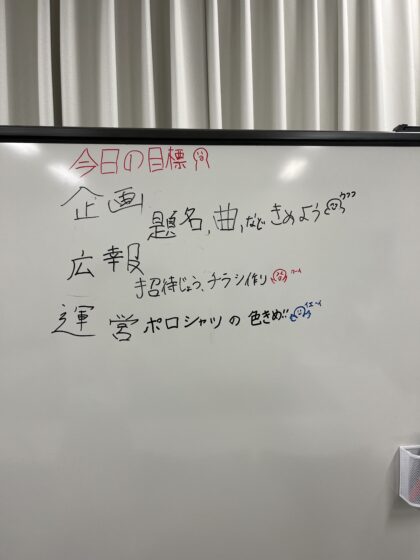 今日の目標
企画
題名,曲,など きめよう
広報
招待じょう、チラシ作り
運営 ポロシャツの 色きめ!!
イエーイ